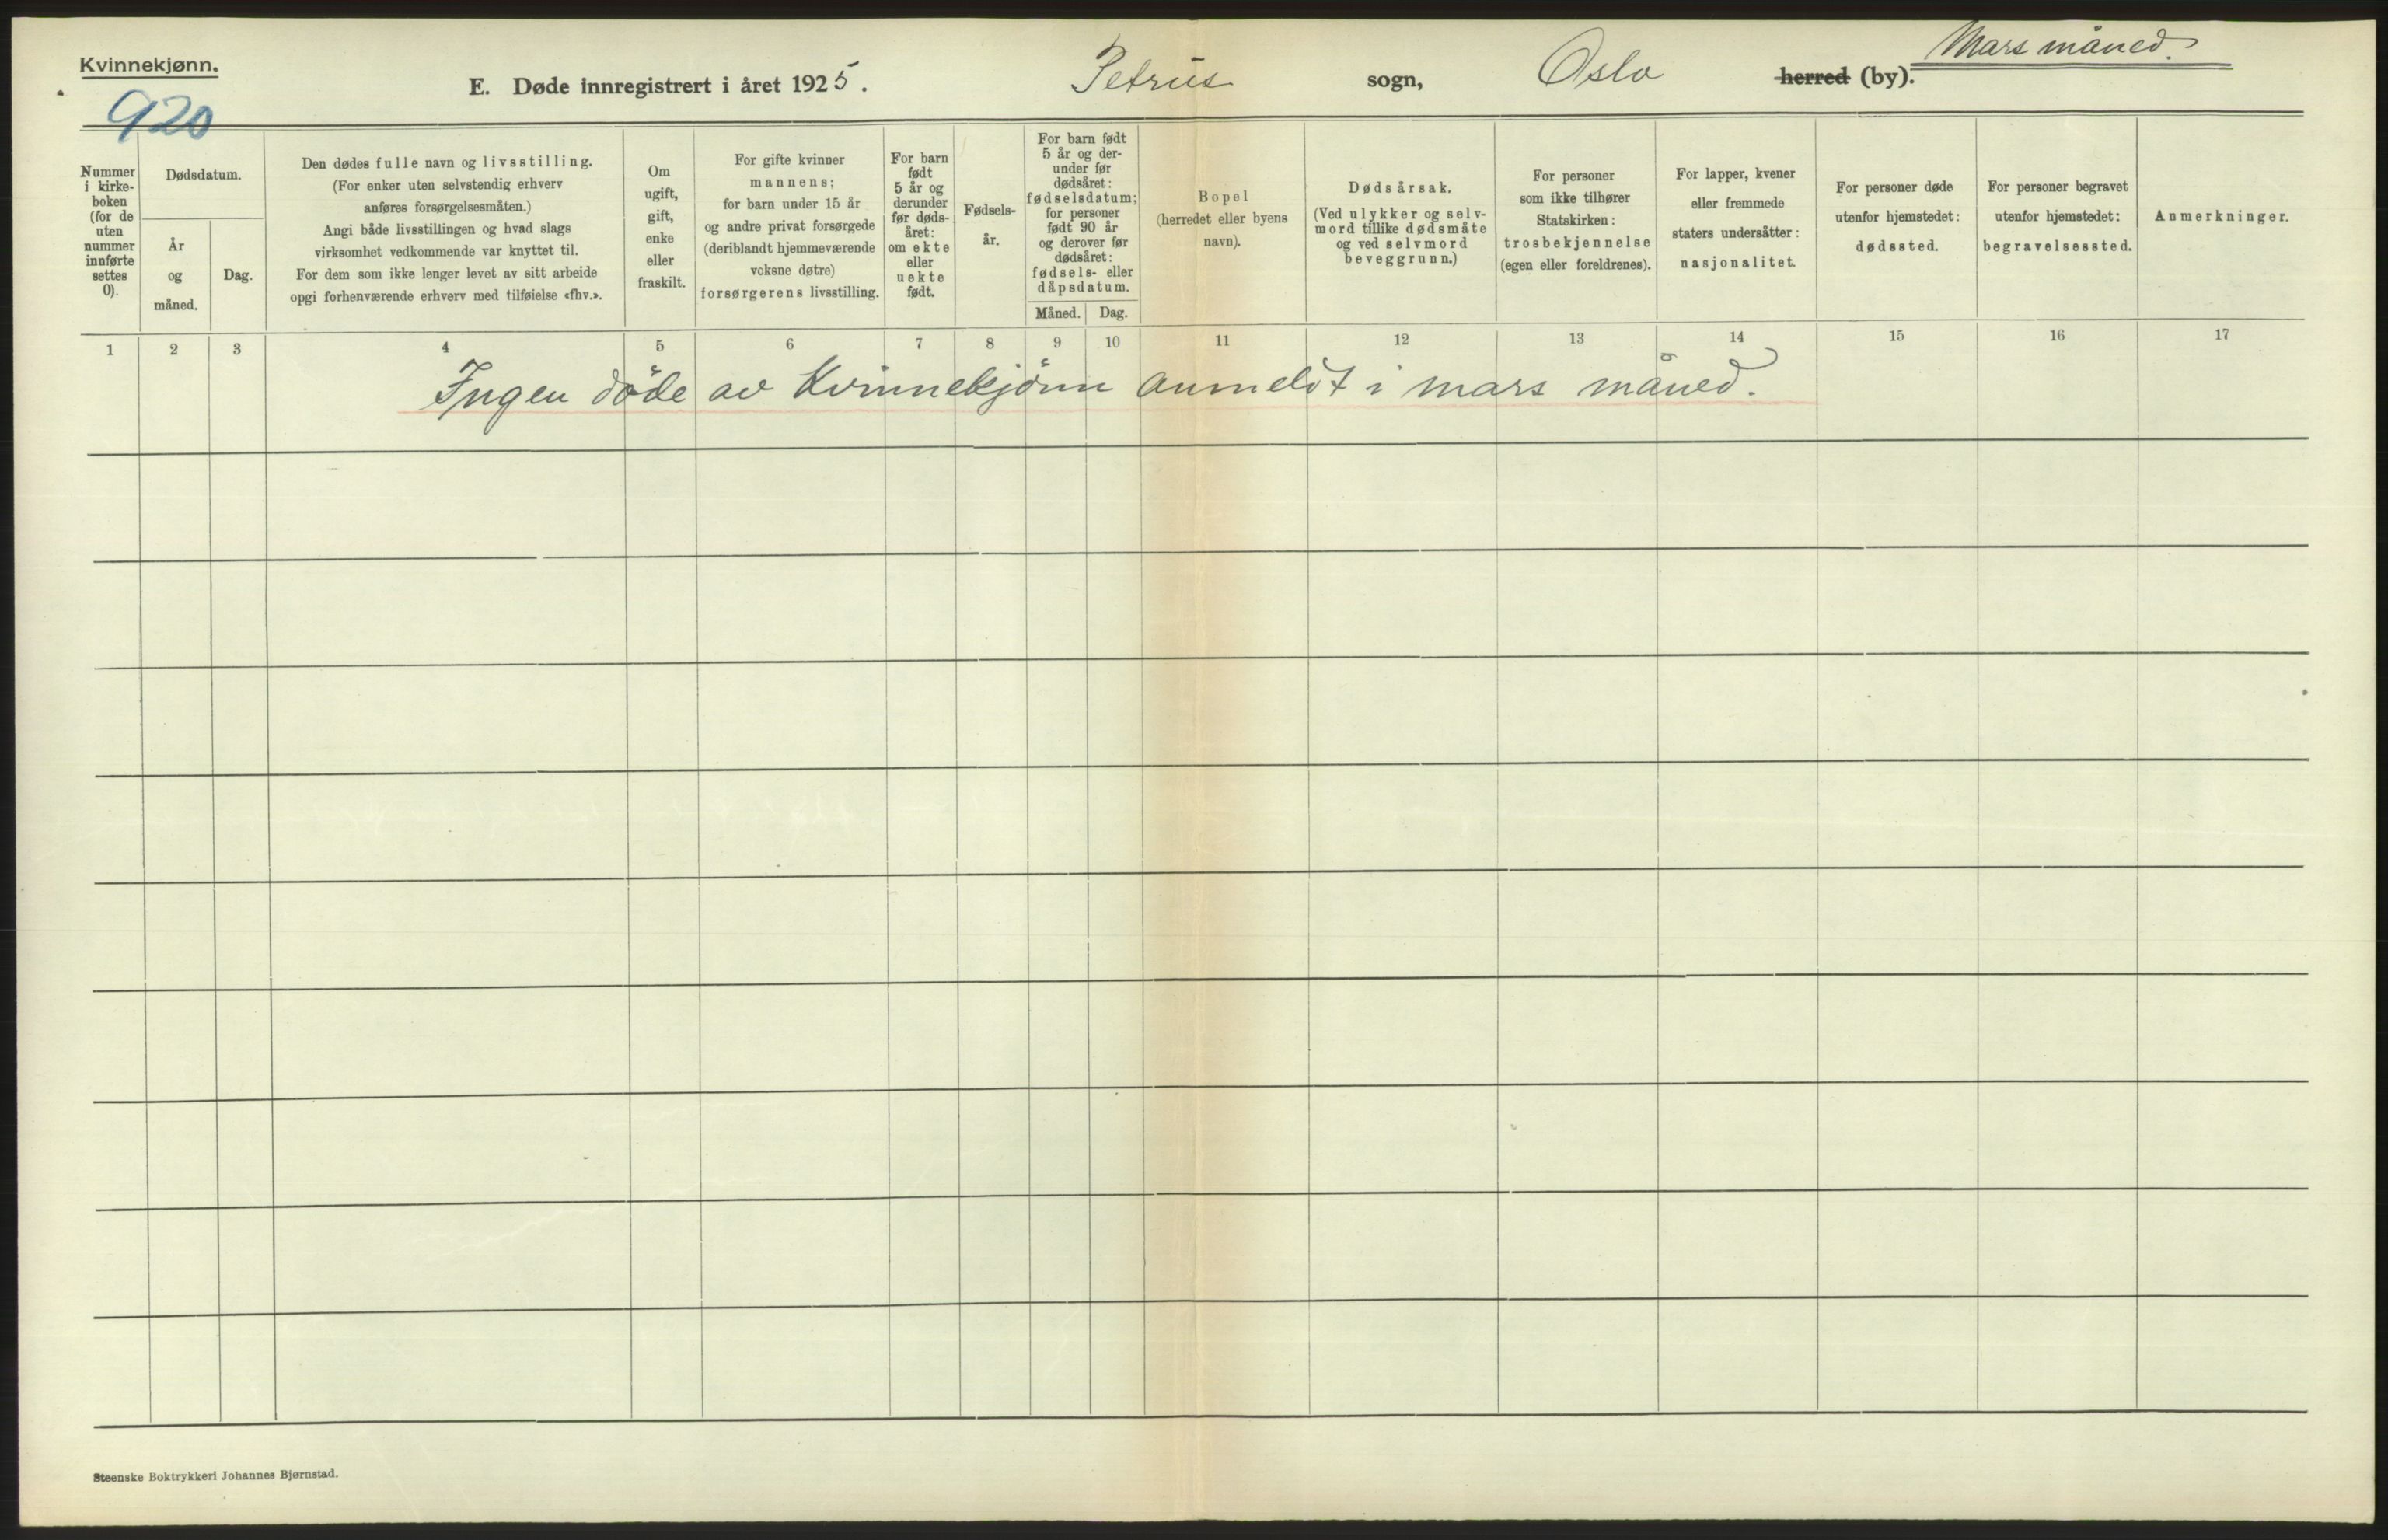 Kvinnekjønn.
920
E. Døde innregistrert i året 1925. Petrus sogn, Oslo herred (by). Mars måned.
Nummer
i kirke-
boken
(for de
uten
nummer
innførte
settes
0).
Dødsdatum.
År
og
måned.
Dag.
Den dødes fulle navn og livsstilling.
(For enker uten selvstendig erhverv
anføres forsørgelsesmåten.)
Angi både livsstillingen og hvad slags
virksomhet vedkommende var knyttet til.
For dem som ikke lenger levet av sitt arbeide
opgi forhenværende erhverv med tilføielse «fhv.».
Om
ugift,
gift,
enke
eller
fraskilt.
For gifte kvinner
mannens;
for barn under 15 år
og andre privat forsørgede
(deriblandt hjemmeværende
voksne døtre)
forsørgerens livsstilling.
For barn
født
5 år og
derunder
før døds-
året:
om ekte
eller
uekte
født.
Fødsels-
år.
For barn født
5 år og der-
under før
dødsåret:
fødselsdatum;
for personer
født 90 år
og derover før
dødsåret:
fødsels- eller
dåpsdatum.
Måned. Dag.
Bopel
(herredet eller byens
navn).
Dødsårsak.
(Ved ulykker og selv-
mord tillike dødsmåte
og ved selvmord
beveggrunn.)
For personer
som ikke tilhører
Statskirken:
trosbekjennelse
(egen eller foreldrenes).
For lapper, kvener
eller fremmede
staters undersåtter:
nasjonalitet.
For personer døde
utenfor hjemstedet:
dødssted.
For personer begravet
utenfor hjemstedet:
begravelsessted.
Anmerkninger.
1 2 3 4 5 6 7 8 9 10 11 12 13 14 15 16 17
Ingen döde av Kvinnekjönn anmeldt i mars måned.
Steenske Boktrykkeri Johannes Bjørnstad.